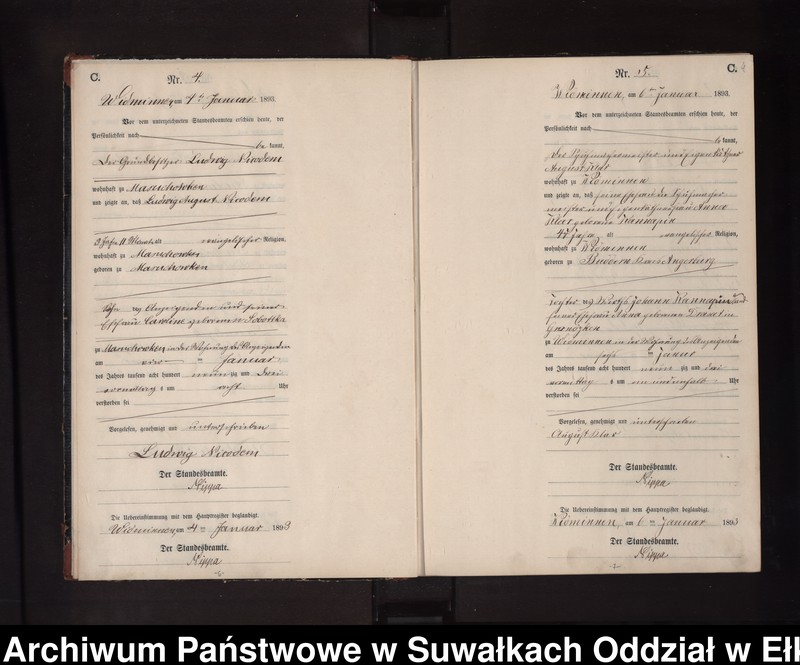 C.
Nr. 4.
Widminnen, am 4ten Januar 1893.
Vor dem unterzeichneten Standesbeamten erschien heute, der
Persönlichkeit nach
be kannt,
Der Grundbesitzer Ludwig Nicodem
wohnhaft zu
und zeigte an, daß Ludwig August Nicodem
evangelischer Religion,
wohnhaft zu
geboren zu
Sohn
Ehefrau Caroline geborenen Sobottka
zu in der Wohnung des Anzeigenden
am Januar
des Jahres tausend acht hundert neun zig und drei
vormittag s um acht Uhr
verstorben sei
Vorgelesen, genehmigt und unterschrieben
Ludwig Nicodem
Der Standesbeamte.
Nippa
Die Uebereinstimmung mit dem Hauptregister beglaubigt.
Widminnen, am 4ten Januar 1893
Der Standesbeamte.
Nippa
C.
Nr. 5.
Widminnen, am 6ten Januar 1893.
Vor dem unterzeichneten Standesbeamten erschien heute, der
Persönlichkeit nach
be kannt,
der Schuhmachermeister und
August
wohnhaft zu Widminnen
und zeigte an, daß seine Ehefrau
Anna
geborene
47 Jahre alt evangelischer Religion,
wohnhaft zu Widminnen
geboren zu Buddern Kreis Angerburg
Tochter Johann und
seiner Ehefrau Anna geborenen
zu Widminnen in der Wohnung des Anzeigenden
am
des Jahres tausend acht hundert neun zig und drei
vormittag s um Uhr
verstorben sei
Vorgelesen, genehmigt und unterschrieben
August
Der Standesbeamte.
Nippa
Die Uebereinstimmung mit dem Hauptregister beglaubigt.
Widminnen, am 6ten Januar 1893
Der Standesbeamte.
Nippa
Archiwum Państwowe w Suwałkach Oddział w Eł